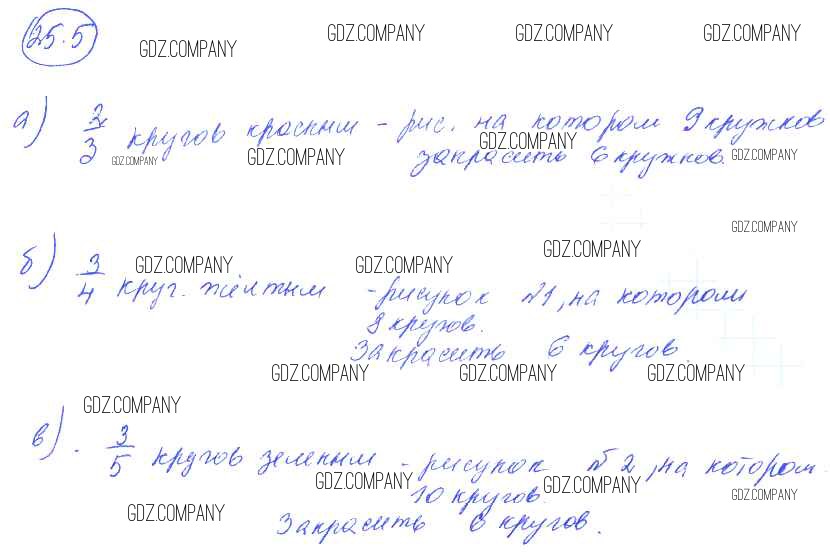 25.5
GDZ.COMPANY GDZ.COMPANY GDZ.COMPANY GDZ.COMPANY
а) 2/3 кругов красным - рис. на котором 9 кружков
GDZ.COMPANY GDZ.COMPANY GDZ.COMPANY GDZ.COMPANY
закрасить 6 кружков.
GDZ.COMPANY
GDZ.COMPANY GDZ.COMPANY GDZ.COMPANY
б) 3/4 круг. жёлтым - рисунок №1, на котором
8 кругов.
Закрасить 6 кругов.
GDZ.COMPANY GDZ.COMPANY GDZ.COMPANY
GDZ.COMPANY
в). 3/5 кругов зеленым - рисунок №2, на котором
GDZ.COMPANY GDZ.COMPANY GDZ.COMPANY
10 кругов.
GDZ.COMPANY
Закрасить 6 кругов.